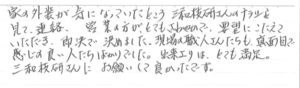 家の外装が気になっていたところ三和技研さんのチラシを
見て、連絡。営業の方がとても親切で、要望にこたえて
いただき、即決で決めました。現場の職人さんたちも真面目で
感じの良い人たちばかりでした。出来上りは、とても満足。
三和技研さんにお願いして良かったです。